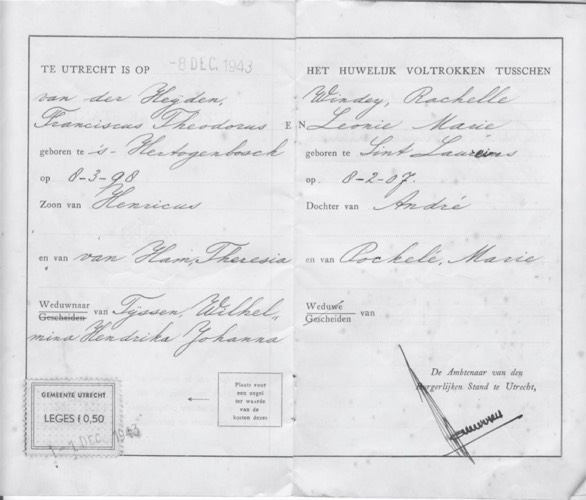 TE UTRECHT IS OP -8 DEC. 1943
van der Heyden,
Franciscus Theodorus
geboren te 's-Hertogenbosch
op 8-3-98
Zoon van Henricus
en van van Ham, Theresia
Weduwnaar
Gescheiden van Tijssen, Wilhel„
mina Hendrika Johanna
GEMEENTE UTRECHT
LEGES f 0,50
DEC. 1943
Plaats voor
een zegel
ter waarde
van de
kosten dezes
EN
HET HUWELIJK VOLTROKKEN TUSSCHEN
Windey, Rachelle
Leonie Marie
geboren te Sint Laureins
op 8-2-07.
Dochter van André
en van Pockelé, Marie
Weduwe
Gescheiden van
De Ambtenaar van den
Burgerlijken Stand te Utrecht,